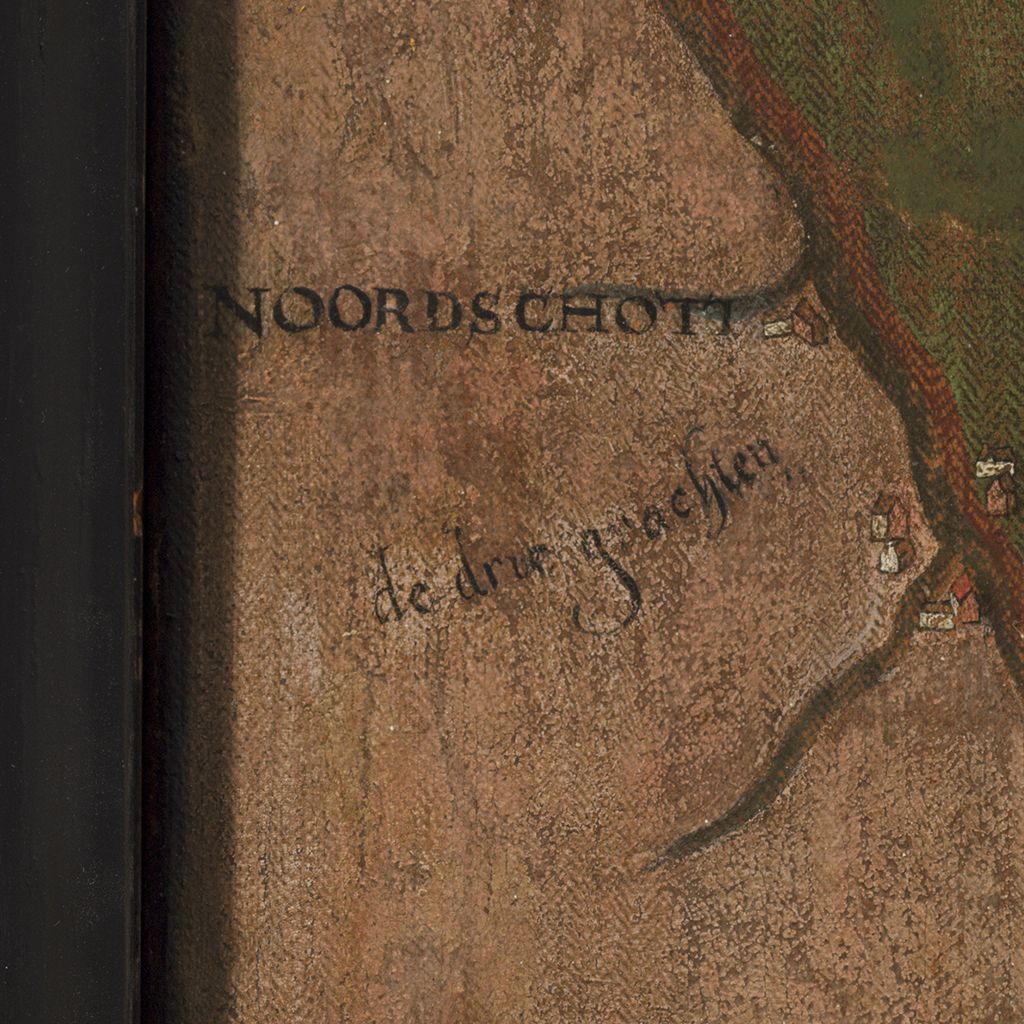 NOORDSCHOTE
de drie grachten